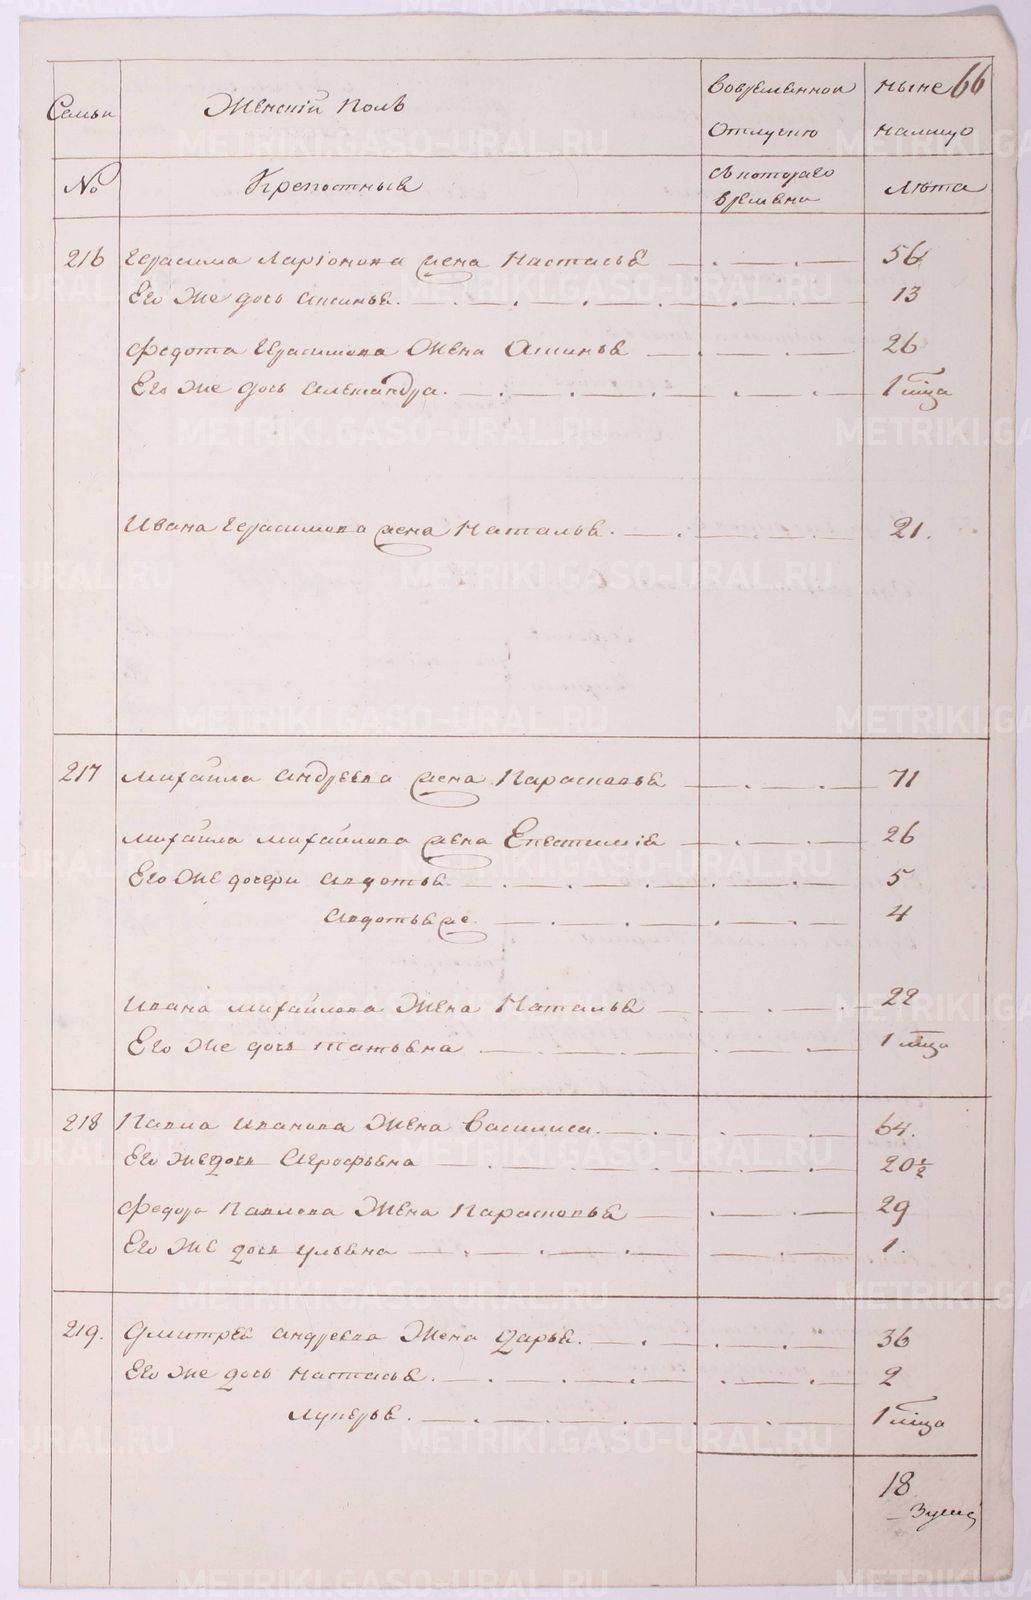 Семьи Женскій полъ Во временной ныне 66
отлучкѣ налицо
№ Крепостные съ котораго Лѣта
времени
216 Герасима Ларіонова жена Настасья 56
Его же дочь Аксинья 13
Федота Герасимова жена Аксинья 26
Его же дочь Александра 1 мца
Ивана Герасимова жена Наталья 21.
217 Михайла Андреева жена Парасковья 71
Михайла Михайлова жена Евестимія 26
Его же дочери Авдотья 5
Авдотья же 4
Ивана Михайлова жена Наталья 22
Его же дочь Татьяна 1 мца
218 Павла Иванова жена Василиса 64.
Его же дочь Агрофьена 20½
Федора Павлова жена Парасковья 29
Его же дочь Ульяна 1.
219. Дмитрея Андреева жена Дарья 36
Его же дочь Настасья 2
Лукерья 1 мца
18
METRIKI.GASO-URAL.RU